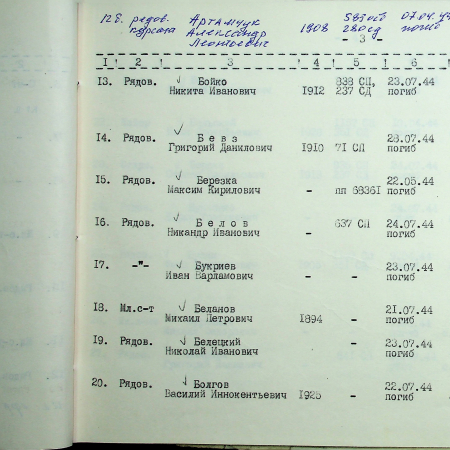 128. рядов. Артамчук 1908 583 об 07.04.44
Александр 280 сд погиб
Леонтьевич
- 3 -
1 2 3 4 5 6
13. Рядов. Бойко 838 СП, 23.07.44
Никита Иванович 1912 237 СД погиб
14. Рядов. Бевз 23.07.44
Григорий Данилович 1910 71 СП погиб
15. Рядов. Березка 22.05.44
Максим Кирилович - пп 68361 погиб
16. Рядов. Белов 637 СП 24.07.44
Никандр Иванович - погиб
17. -"- Букриев 23.07.44
Иван Варламович - - погиб
18. Мл.с-т Беланов 21.07.44
Михаил Петрович 1894 - погиб
19. Рядов. Белецкий - 23.07.44
Николай Иванович погиб
20. Рядов. Болгов 22.07.44
Василий Иннокентьевич 1925 - погиб